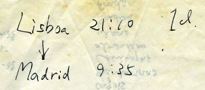 Lisboa 21:10 1cl.
↓
Madrid 9:35